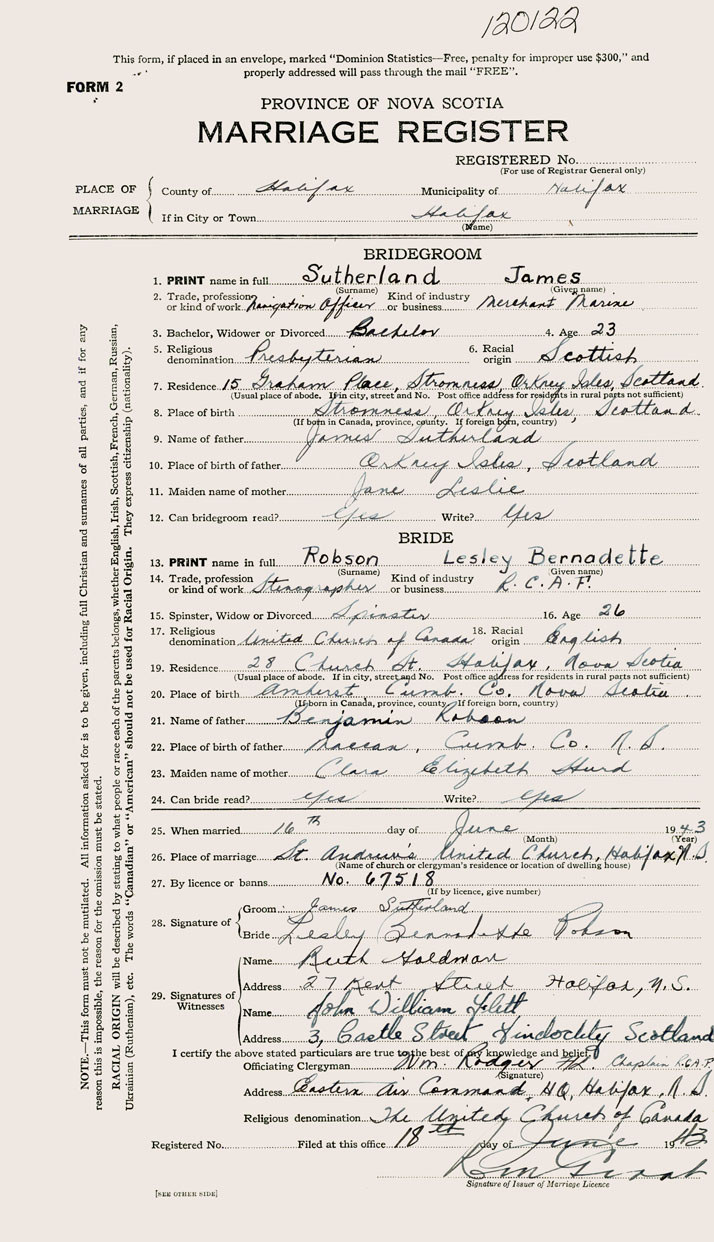 120122
This form, if placed in an envelope, marked "Dominion Statistics—Free, penalty for improper use $300," and
properly addressed will pass through the mail "FREE".
FORM 2
PROVINCE OF NOVA SCOTIA
MARRIAGE REGISTER
REGISTERED No.
(For use of Registrar General only)
PLACE OF MARRIAGE
County of Halifax Municipality of Halifax
If in City or Town Halifax
(Name)
BRIDEGROOM
1. PRINT name in full Sutherland James
(Surname) (Given name)
2. Trade, profession or kind of work Navigation Officer Kind of industry or business Merchant Marine
3. Bachelor, Widower or Divorced Bachelor 4. Age 23
5. Religious denomination Presbyterian 6. Racial origin Scottish
7. Residence 15 Graham Place, Stromness, Orkney Isles, Scotland.
(Usual place of abode. If in city, street and No. Post office address for residents in rural parts not sufficient)
8. Place of birth Stromness, Orkney Isles, Scotland.
(If born in Canada, province, county. If foreign born, country)
9. Name of father James Sutherland
10. Place of birth of father Orkney Isles, Scotland
11. Maiden name of mother Jane Leslie
12. Can bridegroom read? Yes Write? Yes
BRIDE
13. PRINT name in full Robson Lesley Bernadette
(Surname) (Given name)
14. Trade, profession or kind of work Stenographer Kind of industry or business R.C.A.F.
15. Spinster, Widow or Divorced Spinster 16. Age 26
17. Religious denomination United Church of Canada 18. Racial origin English
19. Residence 28 Church St. Halifax, Nova Scotia
(Usual place of abode. If in city, street and No. Post office address for residents in rural parts not sufficient)
20. Place of birth Amherst, Cumb. Co. Nova Scotia
(If born in Canada, province, county. If foreign born, country)
21. Name of father Benjamin Robson
22. Place of birth of father Maccan, Cumb. Co. N.S.
23. Maiden name of mother Clara Elizabeth Hurd
24. Can bride read? Yes Write? Yes
25. When married 16th day of June 1943
(Month) (Year)
26. Place of marriage St. Andrew's United Church, Halifax N.S.
(Name of church or clergyman's residence or location of dwelling house)
27. By licence or banns No. 67518
(If by licence, give number)
28. Signature of
Groom: James Sutherland
Bride Lesley Bernadette Robson
29. Signatures of Witnesses
Name Ruth Goldman
Address 27 Kent Street Halifax, N.S.
Name John William Flett
Address 3, Castle Street Scotland
I certify the above stated particulars are true to the best of my knowledge and belief.
Officiating Clergyman Wm. Rodger Chaplain R.C.A.F.
(Signature)
Address Eastern Air Command, HQ, Halifax, N.S.
Religious denomination The United Church of Canada
Registered No. Filed at this office 18th day of June 1943
Signature of Issuer of Marriage Licence
[SEE OTHER SIDE]
NOTE.—This form must not be mutilated. All information asked for is to be given, including full Christian and surnames of all parties, and if for any
reason this is impossible, the reason for the omission must be stated.
RACIAL ORIGIN will be described by stating to what people or race each of the parents belongs, whether English, Irish, Scottish, French, German, Russian,
Ukrainian (Ruthenian), etc. The words "Canadian" or "American" should not be used for Racial Origin. They express citizenship (nationality).